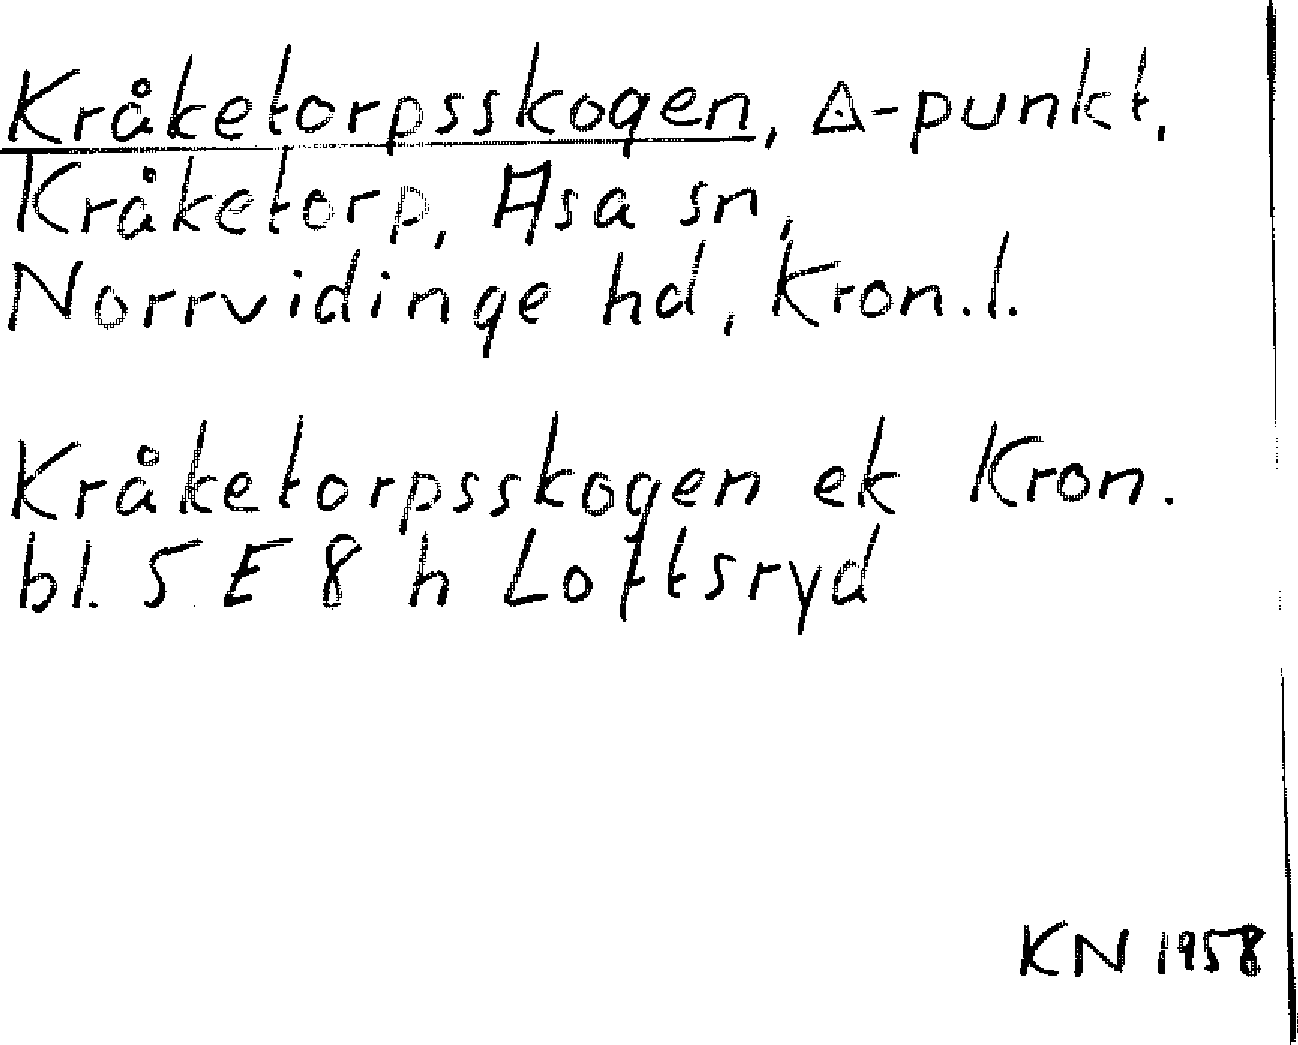 Kråketorpsskogen, △-punkt,
Kråketorp, Asa sn,
Norrvidinge hd, Kron.l.
Kråketorpsskogen ek Kron.
bl. 5 E 8 h Loftsryd
KN 1958